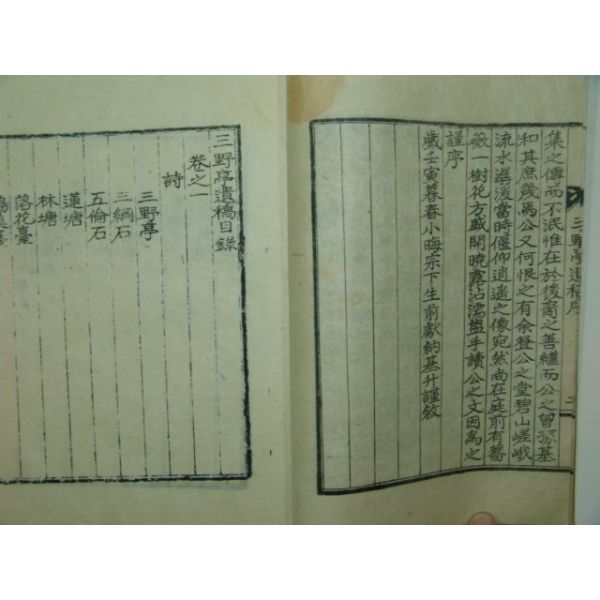 集之傳而不泯惟在於後裔之善繼而公之曾孫基
和其庶幾焉公又何恨之有余登公之堂碧山嵯峨
流水潺湲當時偃仰逍遙之像宛然尚在庭前有薔
薇一樹花方盛開曉露沾濡盥手讀公之文因爲之
謹序
歲壬寅暮春小晦宗下生前獻納基升謹敘
三野亭遺稿序
二
三野亭遺稿目錄
卷之一
詩
三野亭
三綱石
五倫石
蓮塘
林塘
落花臺